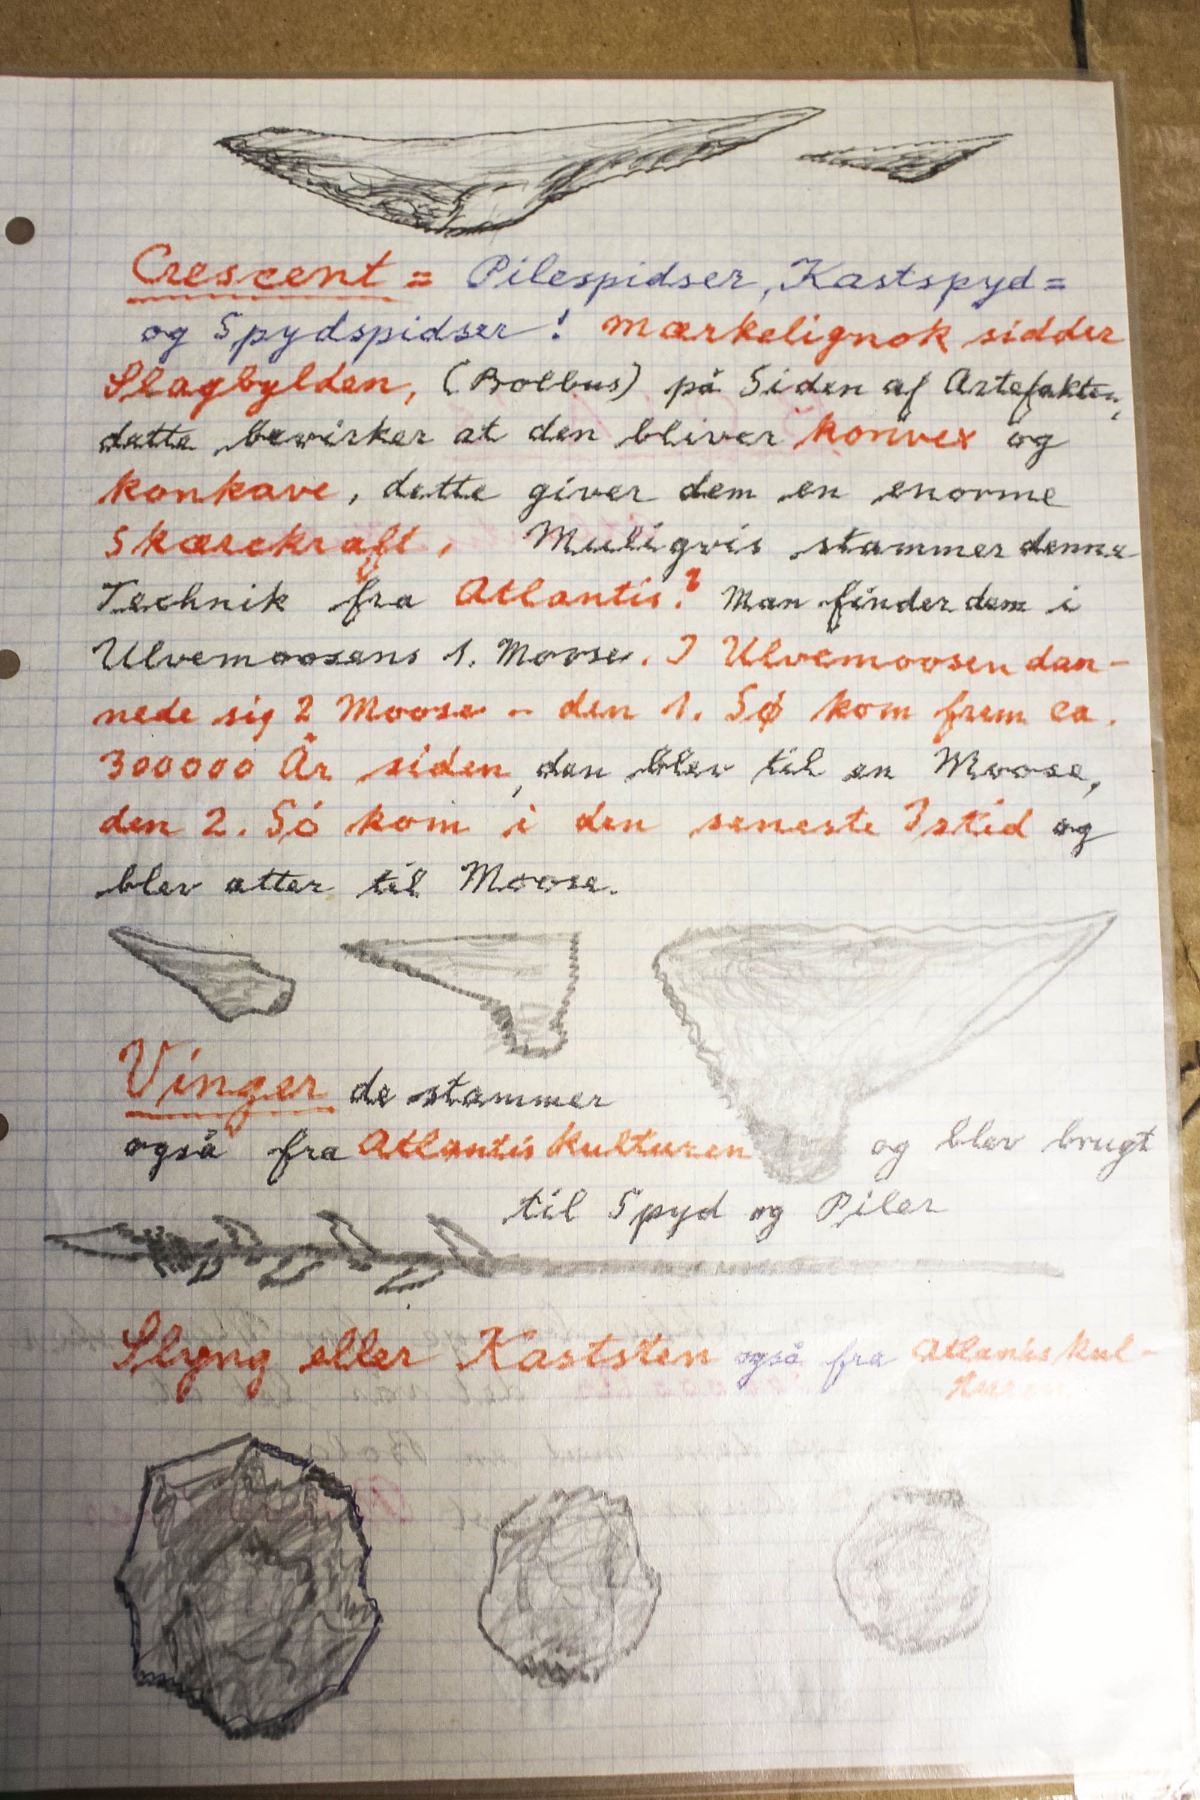 Crescent = Pilespidser, Kastspyd=
og Spydspidser! Mærkelignok sidder
Slagbylden, (Bolbus) på Siden af Artefakten,
dette bewirker at den bliver konvex og
konkave, dette giver dem en enorme
Skærekraft, Muligvis stammer denne
Technik fra Atlantis? Man finder dem i
Ulvemoosens 1. Moose. I Ulvemoosen dan-
nede sig 2 Moose - den 1. Sø kom frem ca.
300000 År siden, den blev til en Moose,
den 2. Só kom i den seneste Istid og
blev atter til Moose.
Vinger de stammer
også fra Atlantiskulturen og blev brugt
til Spyd og Piler
Slyng eller Kaststen også fra Atlantiskul-
turen